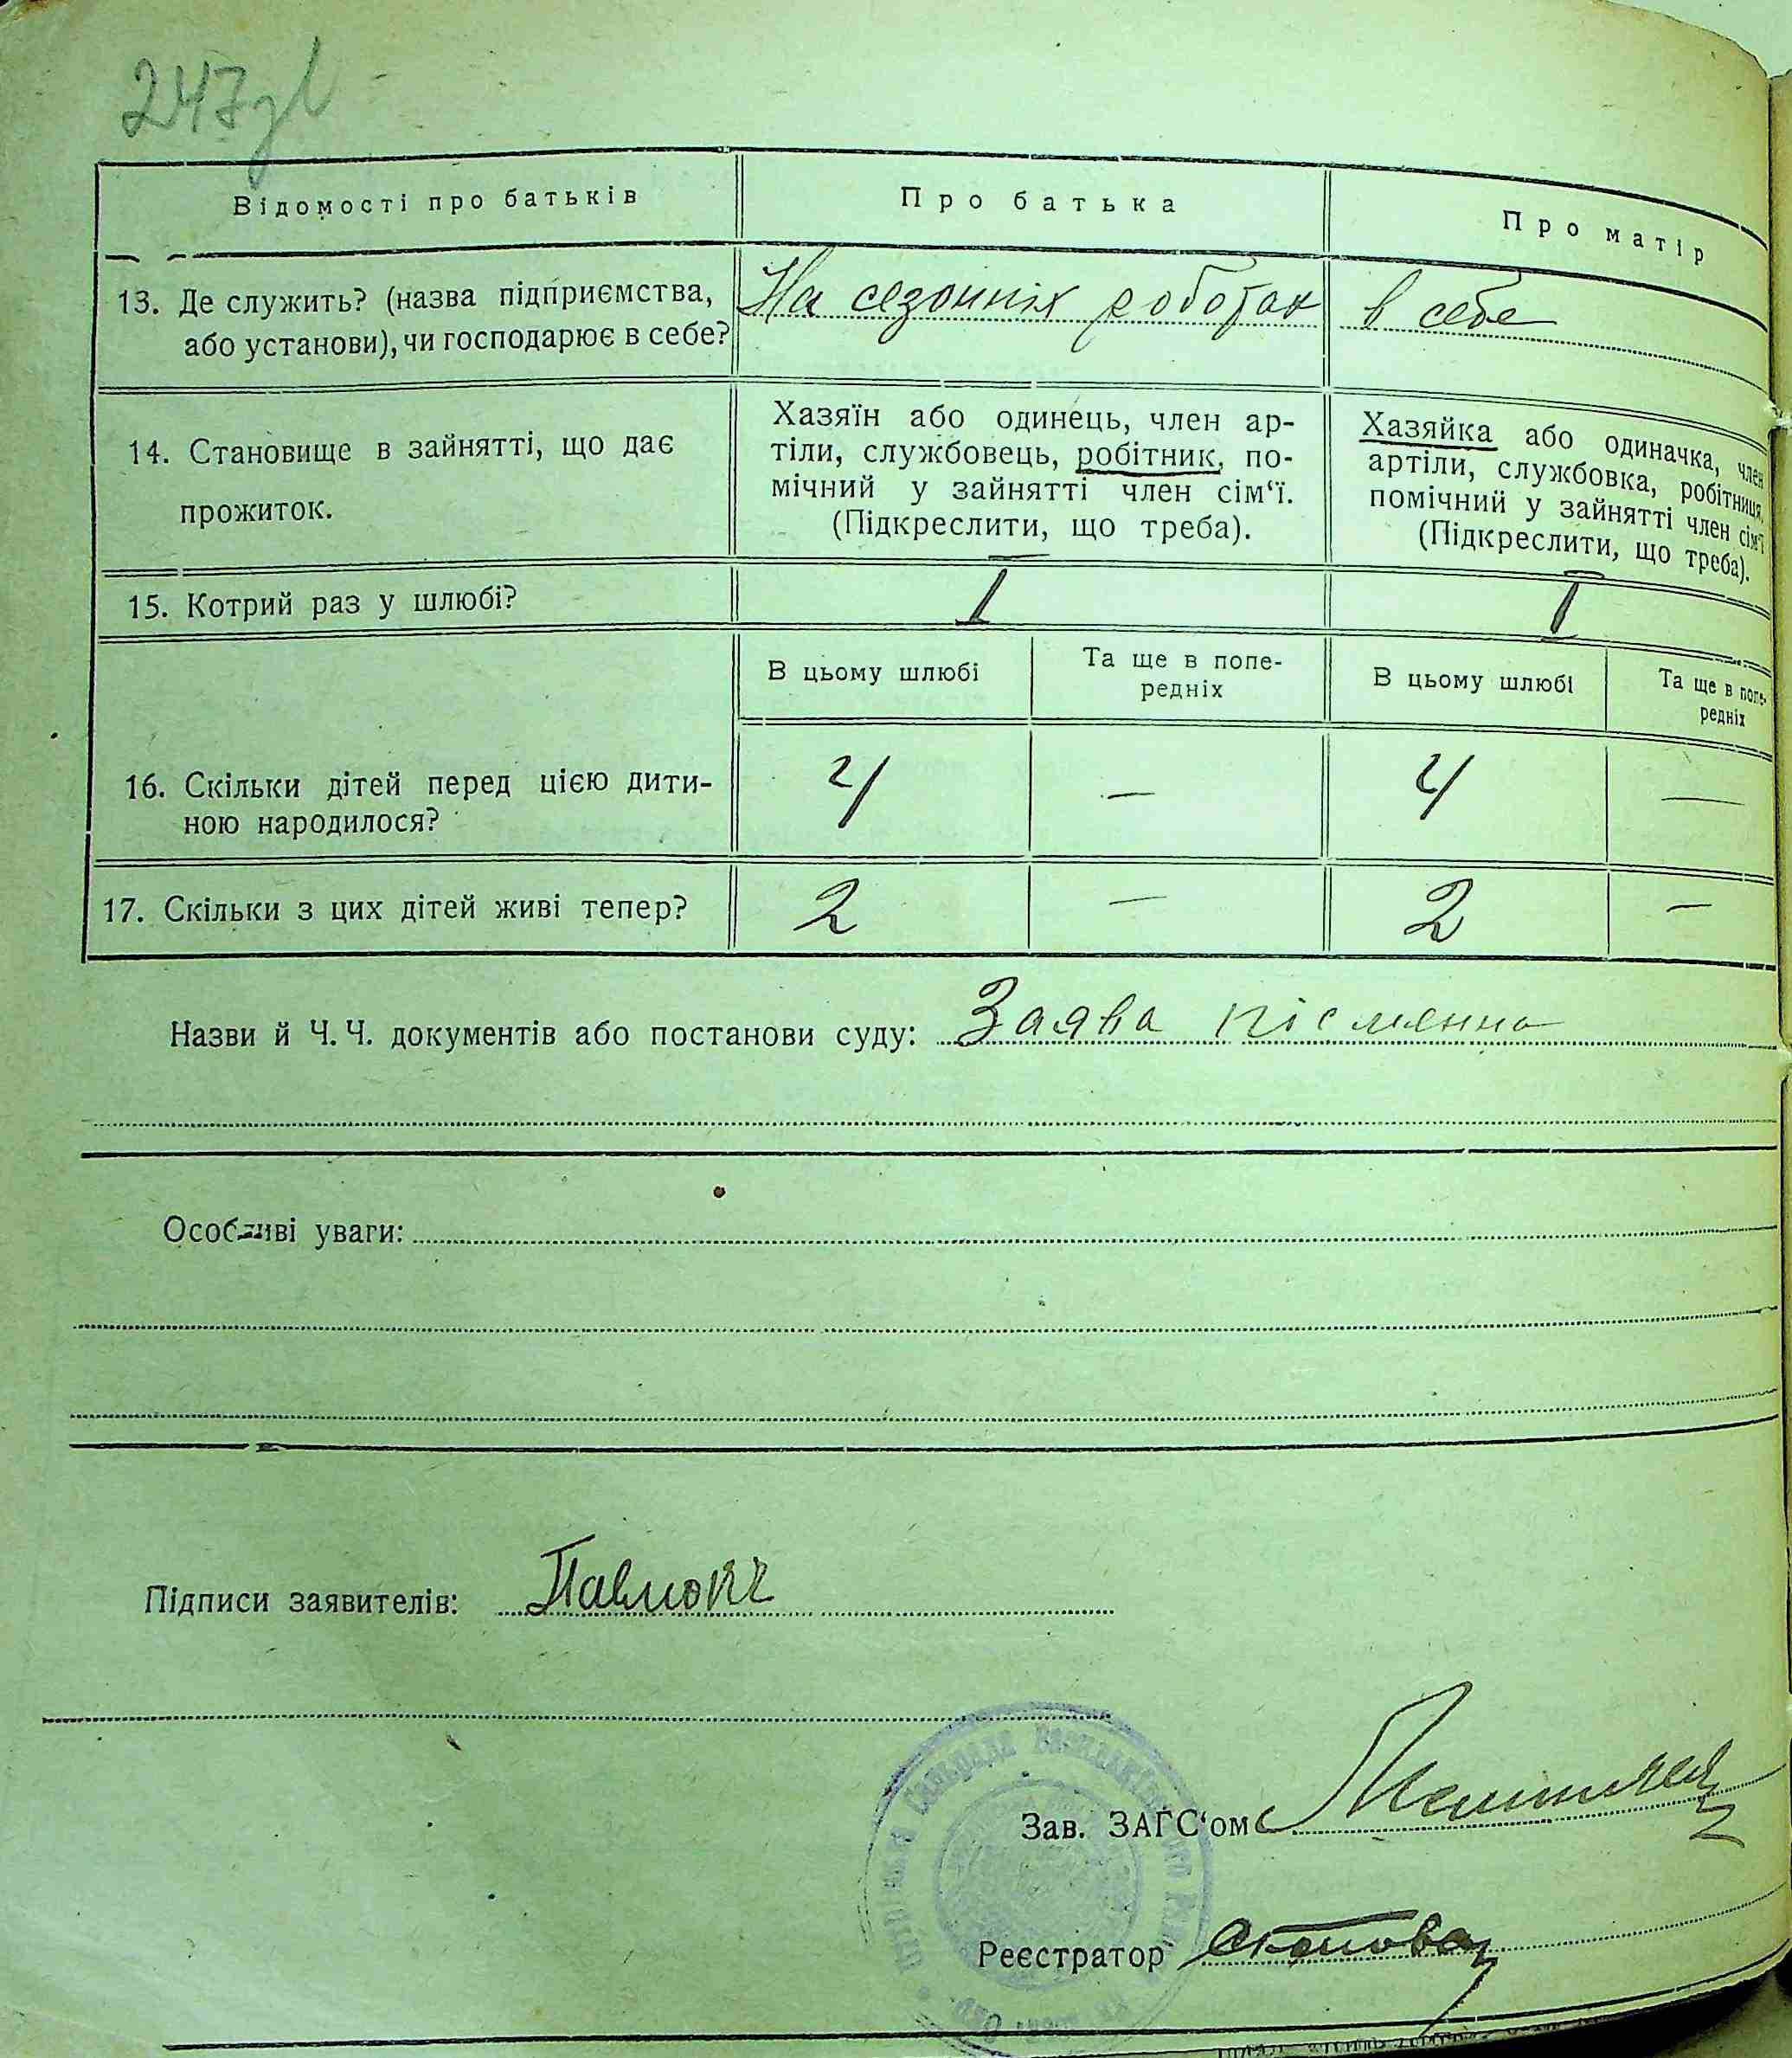 247
Відомості про батьків
Про батька
Про матір
13. Де служить? (назва підприємства,
або установи), чи господарює в себе?
На сезонніх роботах
в себе
14. Становище в зайнятті, що дає
прожиток.
Хазяїн або одинець, член ар-
тіли, службовець, робітник, по-
мічний у зайнятті член сім‘ї.
(Підкреслити, що треба).
Хазяйка або одиначка, член
артіли, службовка, робітниця,
помічний у зайнятті член сім‘ї
(Підкреслити, що треба).
15. Котрий раз у шлюбі?
I
I
В цьому шлюбі
Та ще в попе-
редніх
В цьому шлюбі
Та ще в попе-
редніх
16. Скільки дітей перед цією дити-
ною народилося?
4
—
4
—
17. Скільки з цих дітей живі тепер?
2
—
2
—
Назви й Ч. Ч. документів або постанови суду: Заява пісменна
Особливі уваги:
Підписи заявителів:
Зав. ЗАГС‘ом
Реєстратор
Сельрада